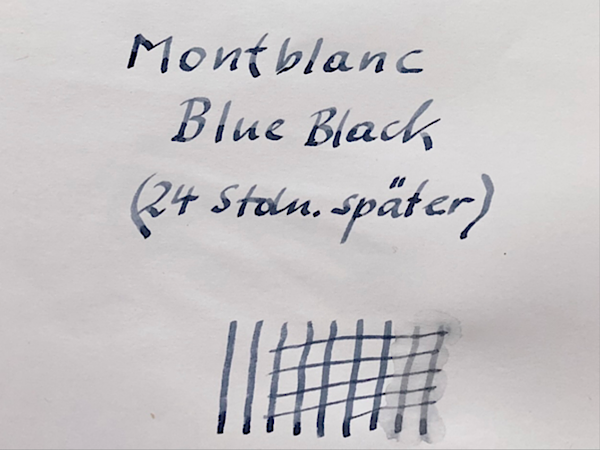 Montblanc
Blue Black
(24 Stdn. später)